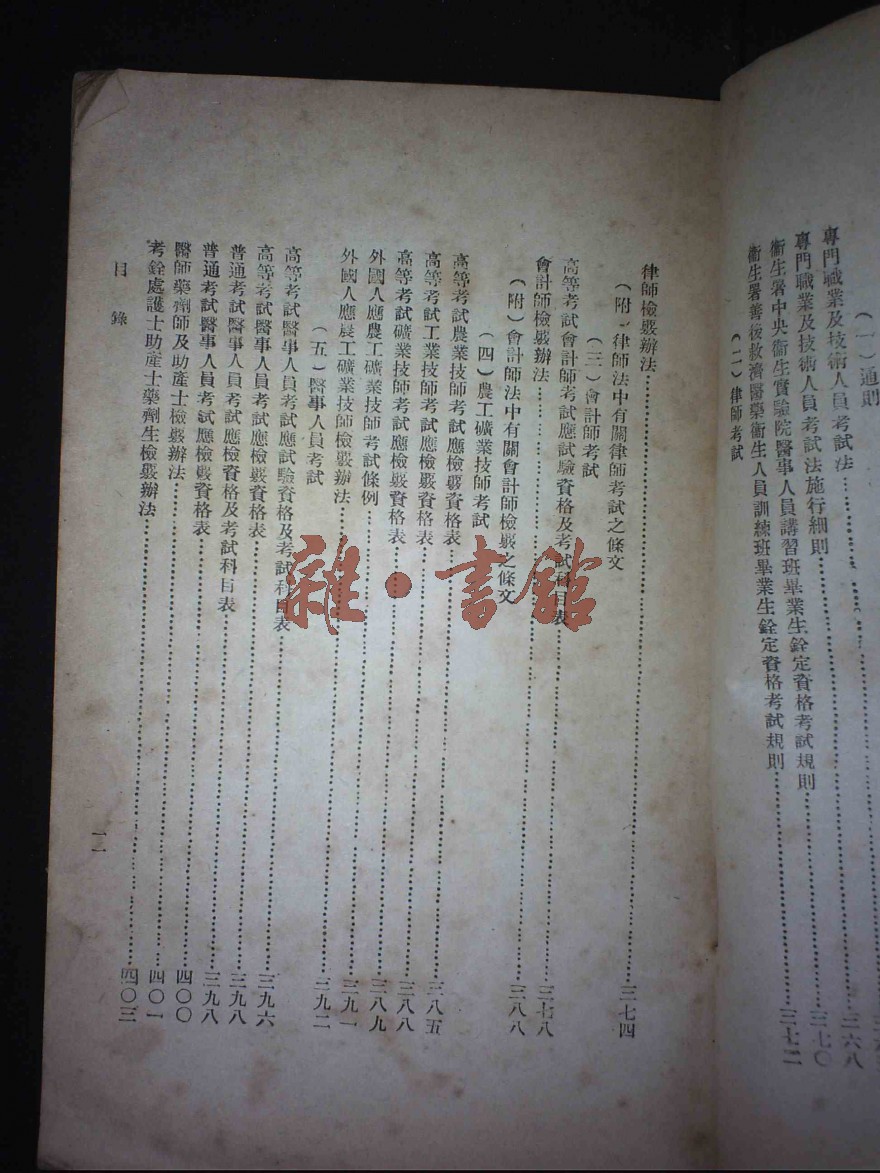 (一)通則
專門職業及技術人員考試法……三六
專門職業及技術人員考試法施行細則……三六八
衞生署中央衞生實驗院醫事人員講習班畢業生銓定資格考試規則……三七〇
衞生署善後救濟醫藥衞生人員訓練班畢業生銓定資格考試規則……三七二
(二)律師考試
律師檢覈辦法……三七四
(附)律師法中有關律師考試之條文
(三)會計師考試
高等考試會計師考試應試驗資格及考試科目表……三七八
會計師檢覈辦法……三八八
(附)會計師法中有關會計師檢覈之條文
(四)農工礦業技師考試
高等考試農業技師考試應檢覈資格表……三八五
高等考試工業技師考試應檢覈資格表……三八八
高等考試礦業技師考試應檢覈資格表……三八九
外國人應農工礦業技師考試條例……三九一
外國人應農工礦業技師檢覈辦法……三九二
(五)醫事人員考試
高等考試醫事人員考試應試驗資格及考試科目表……三九六
高等考試醫事人員考試應檢覈資格表……三九八
普通考試醫事人員考試應檢資格及考試科目表……三九八
普通考試醫事人員考試應檢覈資格表……四〇〇
醫師藥劑師及助產士檢覈辦法……四〇一
考銓處護士助產士藥劑生檢覈辦法……四〇三
目錄
一一
雜·書館